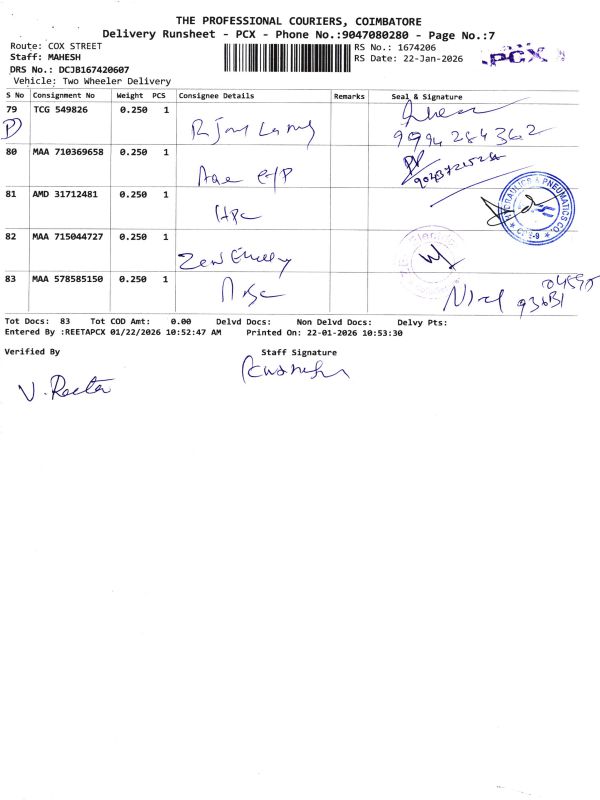 THE PROFESSIONAL COURIERS, COIMBATORE
Delivery Runsheet - PCX - Phone No.:9047080280 - Page No.:7
Route: COX STREET
Staff: MAHESH
DRS No.: DCJB167420607
Vehicle: Two Wheeler Delivery
RS No.: 1674206
RS Date: 22-Jan-2026
PCX
S No Consignment No Weight PCS Consignee Details Remarks Seal & Signature
79 TCG 549826 0.250 1
9994284362
80 MAA 710369658 0.250 1
81 AMD 31712481 0.250 1
HPC
HYDRAULICS & PNEUMATICS CO.
CBE-9
82 MAA 715044727 0.250 1
83 MAA 578585150 0.250 1
Tot Docs: 83 Tot COD Amt: 0.00 Delvd Docs: Non Delvd Docs: Delvy Pts:
Entered By :REETAPCX 01/22/2026 10:52:47 AM Printed On: 22-01-2026 10:53:30
Verified By Staff Signature
V. Reeta